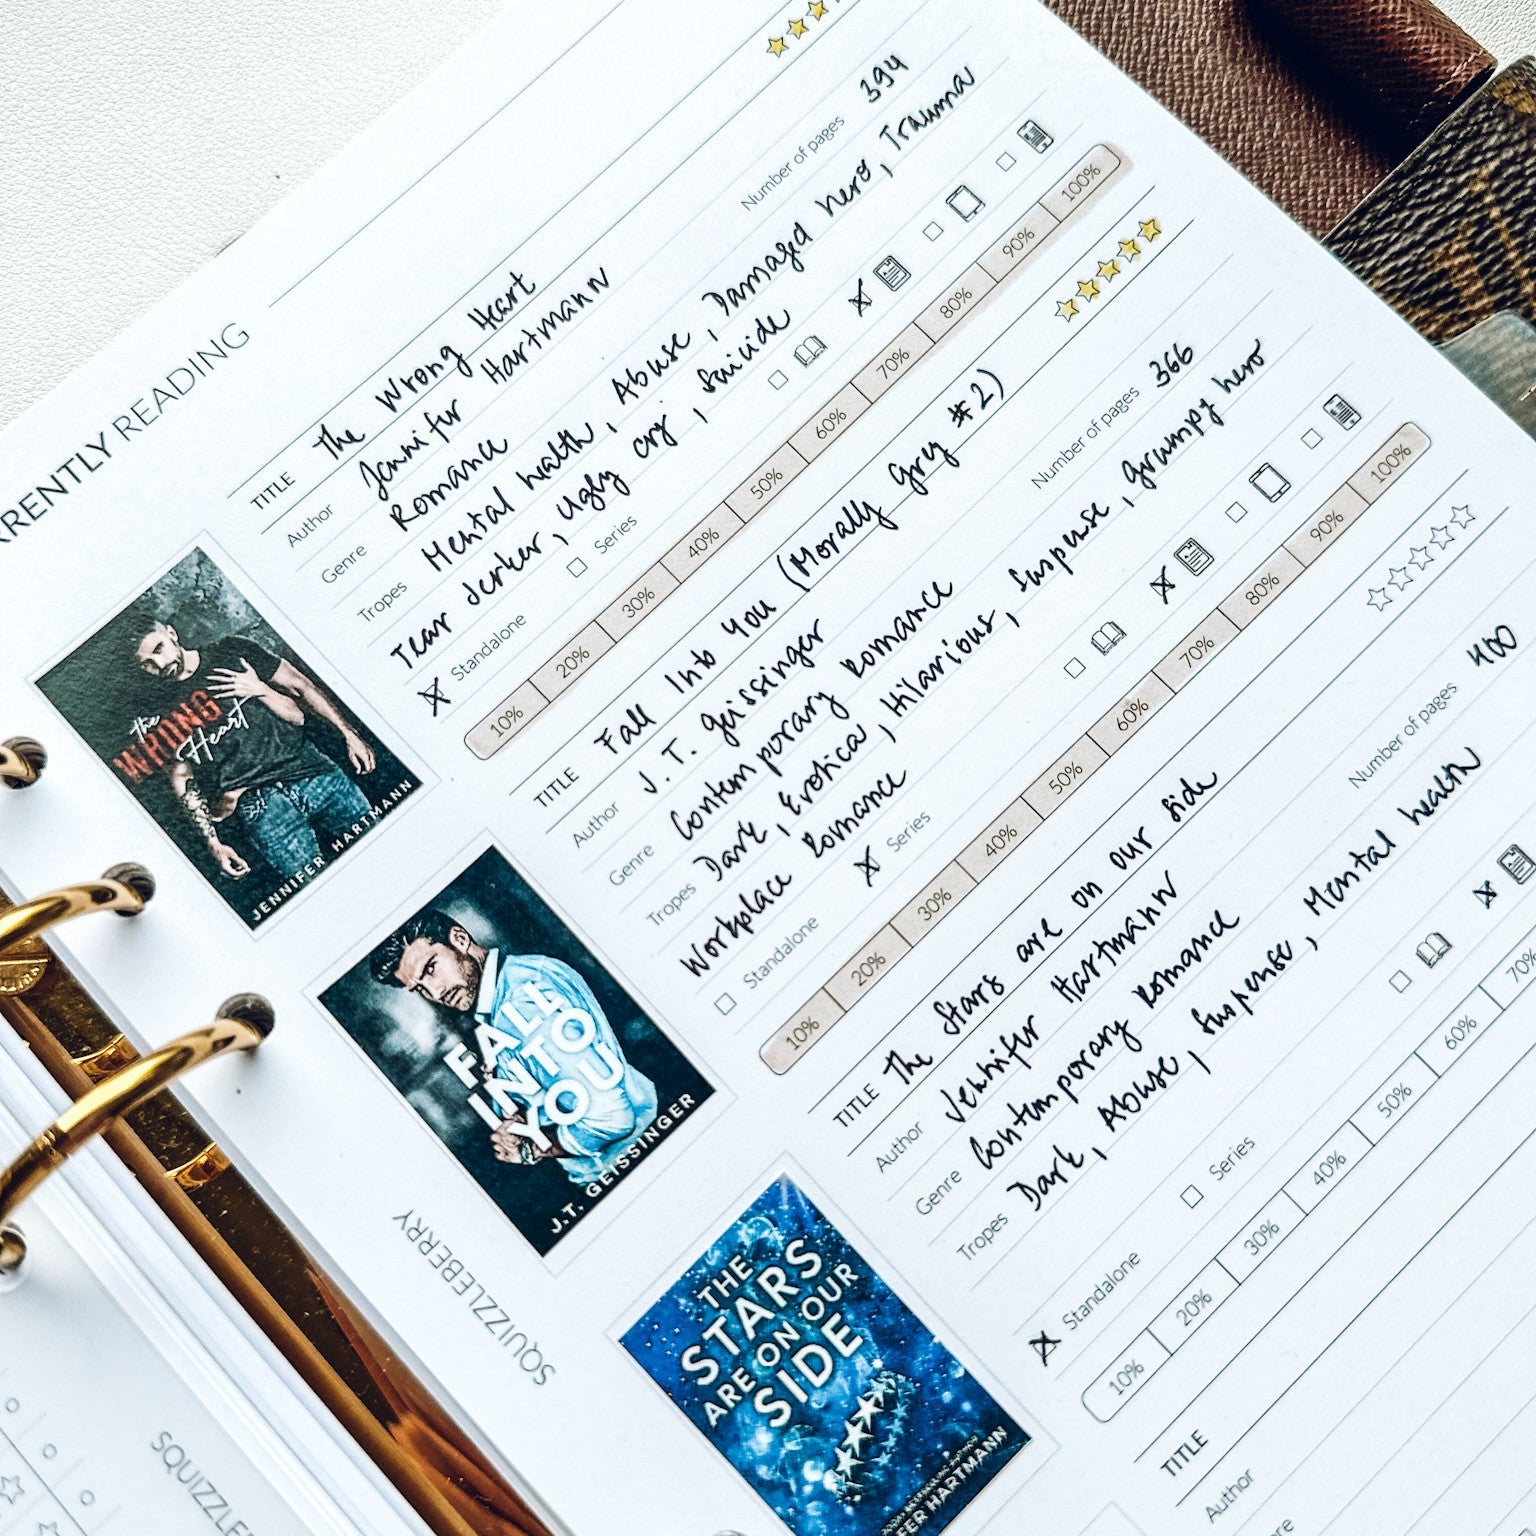 RRENTLY READING
TITLE The Wrong Heart
Author Jennifer Hartmann
Number of pages 394
Genre Romance
Tropes Mental health, Abuse, Damaged hero, Trauma
Tear Jerker, Ugly cry, Suicide
Standalone Series
10% 20% 30% 40% 50% 60% 70% 80% 90% 100%
the
WRONG
Heart
JENNIFER HARTMANN
TITLE Fall Into You (Morally Grey #2)
Author J. T. Geissinger
Number of pages 366
Genre Contemporary Romance
Tropes Dark, Erotica, Hilarious, Suspense, Grumpy hero
Workplace Romance
Standalone Series
10% 20% 30% 40% 50% 60% 70% 80% 90% 100%
FALL
INTO
YOU
J.T. GEISSINGER
TITLE The Stars are on our side
Author Jennifer Hartmann
Number of pages 400
Genre Contemporary Romance
Tropes Dark, Abuse, Suspense, Mental health
Standalone Series
10% 20% 30% 40% 50% 60% 70%
THE
STARS
ARE ON OUR
SIDE
FER HARTMANN
TITLE
Author
nre
SQUIZZLEBERRY
SQUIZZLE